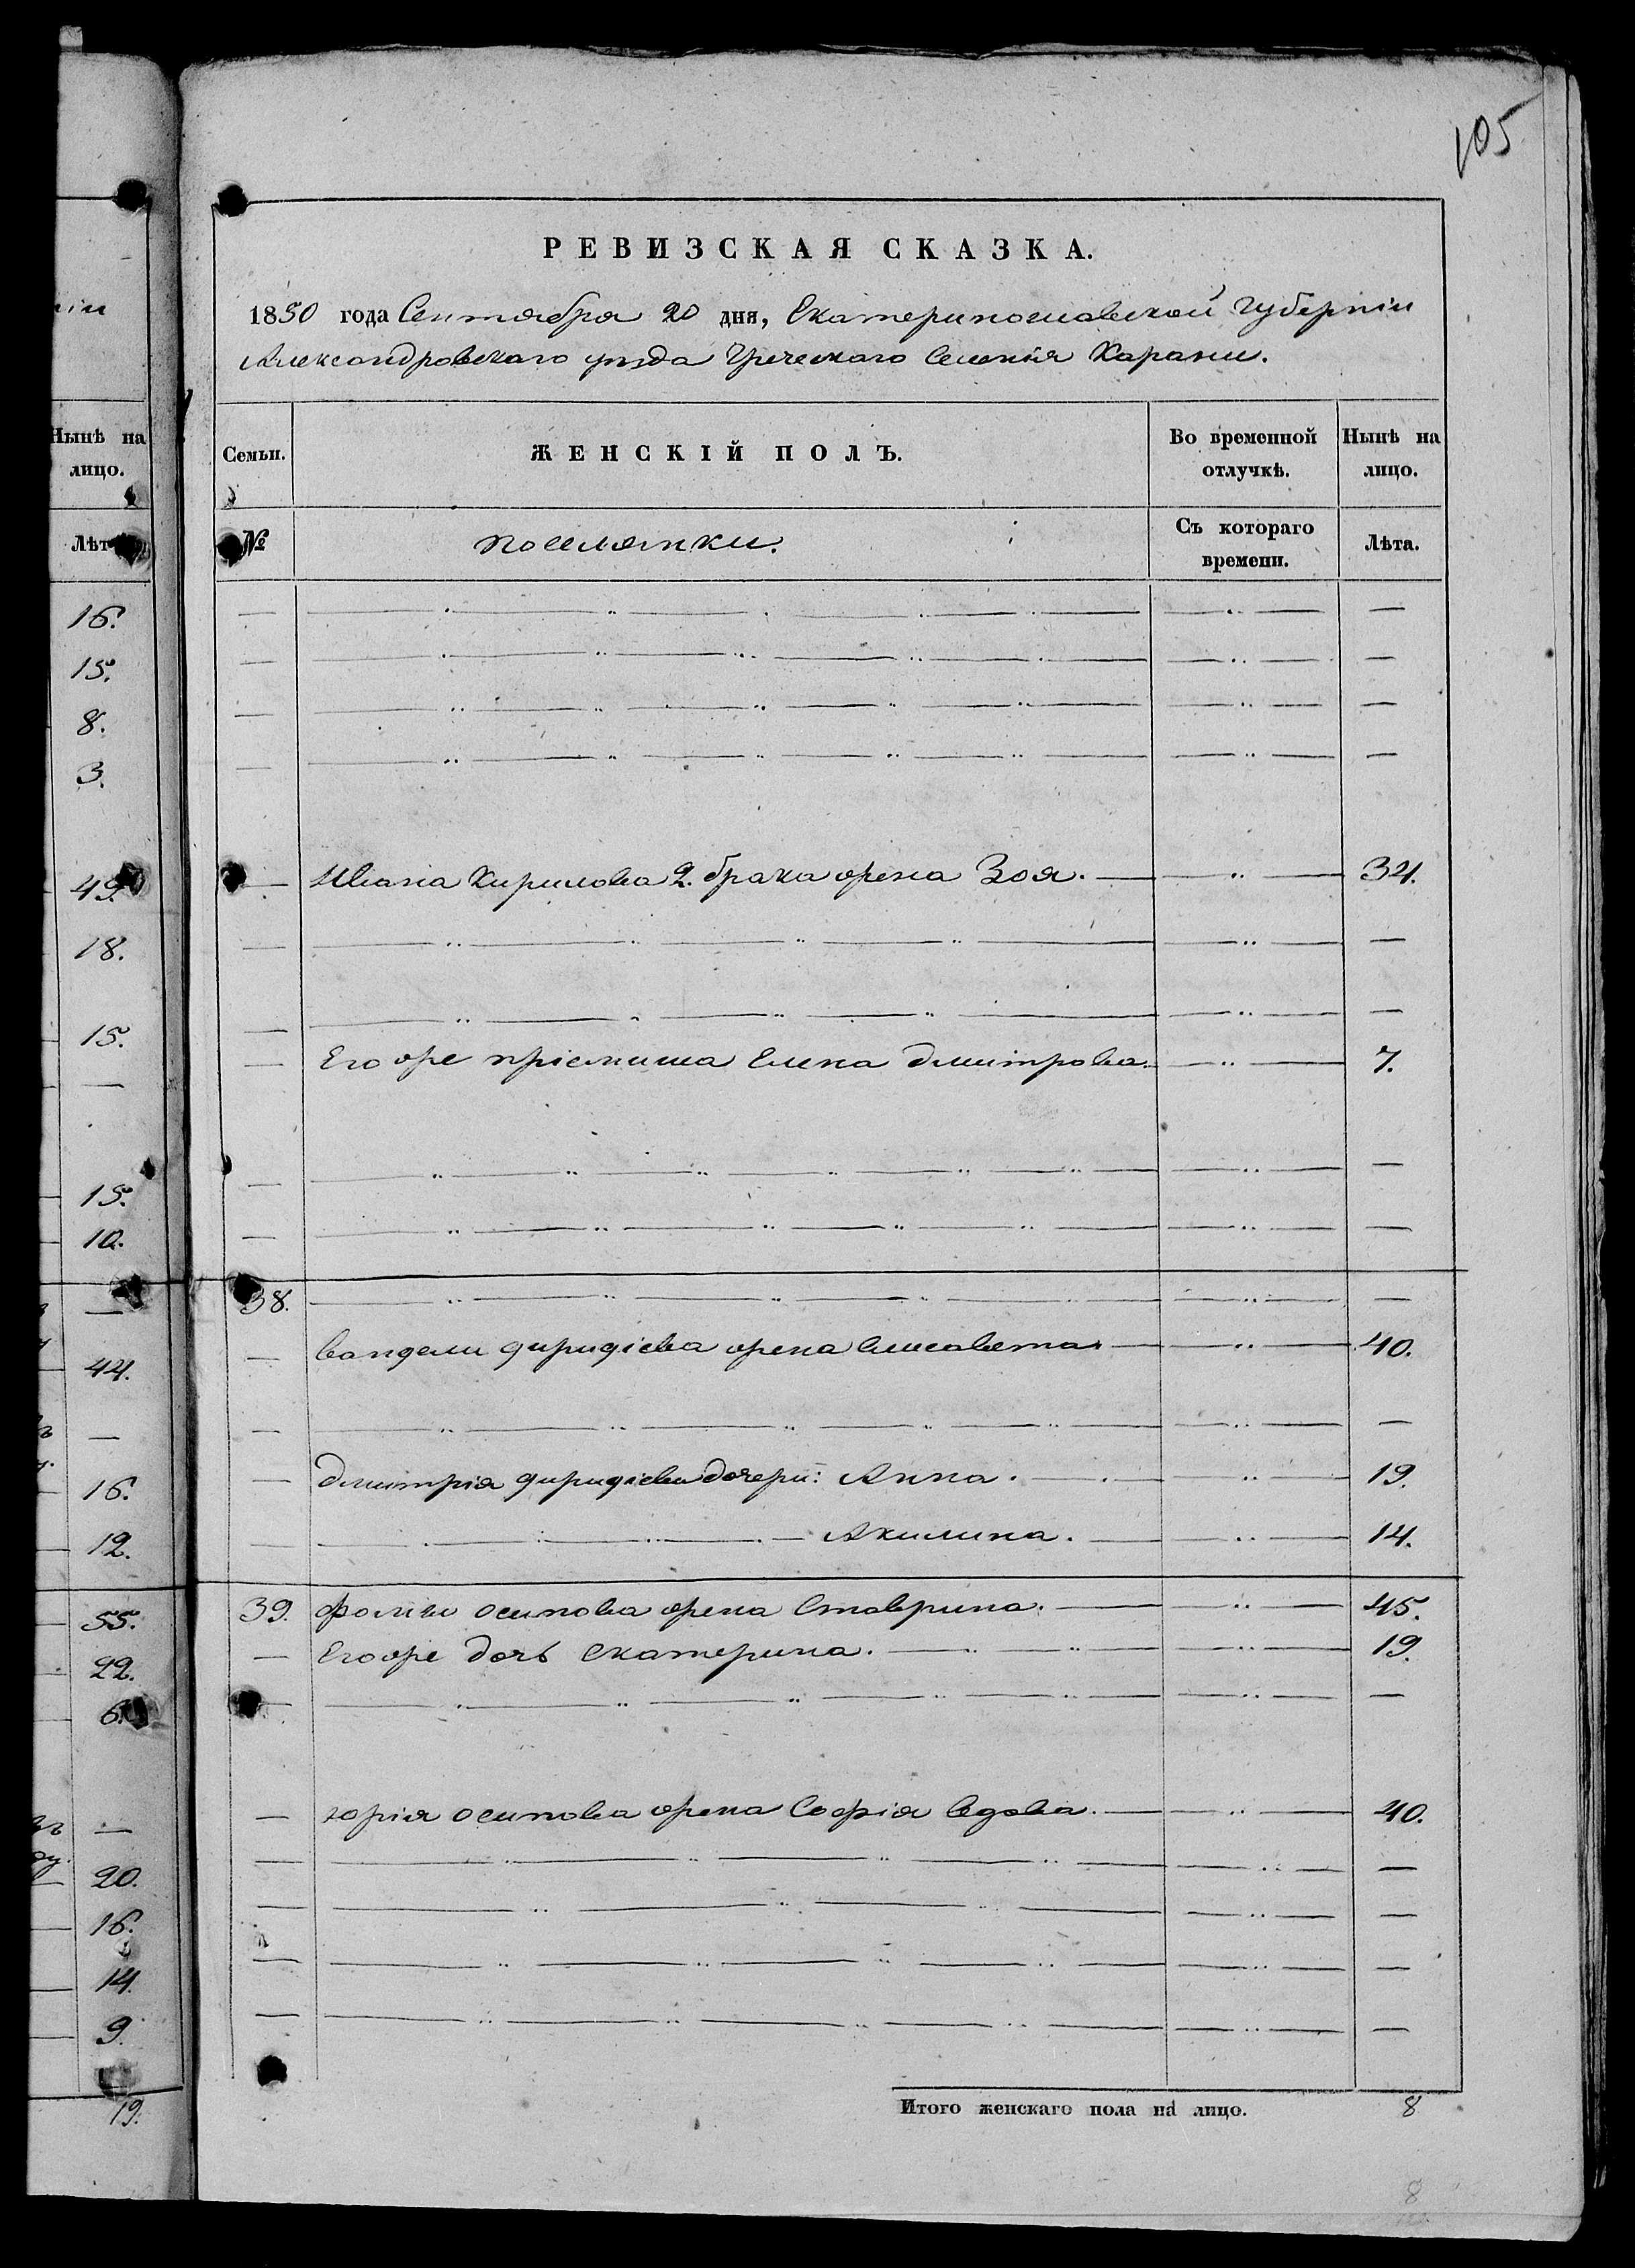 105
РЕВИЗСКАЯ СКАЗКА.
1850 года Сентября 20 дня, Екатеринославской Губерніи
Александровскаго уѣзда Греческаго Селенія Карани.
Семьи.
ЖЕНСКІЙ ПОЛЪ.
Во временной отлучкѣ.
Нынѣ на лицо.
№
поселянки.
Съ котораго времени.
Лѣта.
Ивана Кирилова 2. брака жена Зоя. 34.
Его же пріемыша Елена Дмитрова. 7.
38.
Вангели Фириджіева жена Елисавета 40.
Дмитрія Фириджіева дочери: Анна. 19.
Акилина. 14.
39. Фомы Осипова жена Ставрина. 45.
Его же дочь Екатерина. 19.
Юрія Осипова жена Софія вдова. 40.
Итого женскаго пола на лицо. 8
8
ніи
Нынѣ на
лицо.
Лѣт
16.
15.
8.
3.
49.
18.
15.
15.
10.
44.
16.
12.
55.
22.
6.
20.
16.
14.
9.
19.